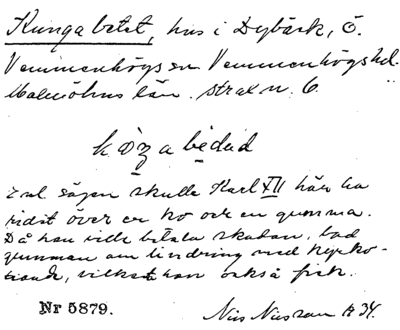 Kungabetet, hus i Dybäck, Ö.
Vemmenhögs sn Vemmenhögs hd.
Malmöhus län. strax n. 6.
bedad
Enl. sägen skulle Karl XII här ha
ridit över en ko och en gumma.
Då han ville betala skadan, bad
gumman om lindring med kyrko-
tionde, vilket han också fick.
Nr 5879. Nils Nilsson 1934.